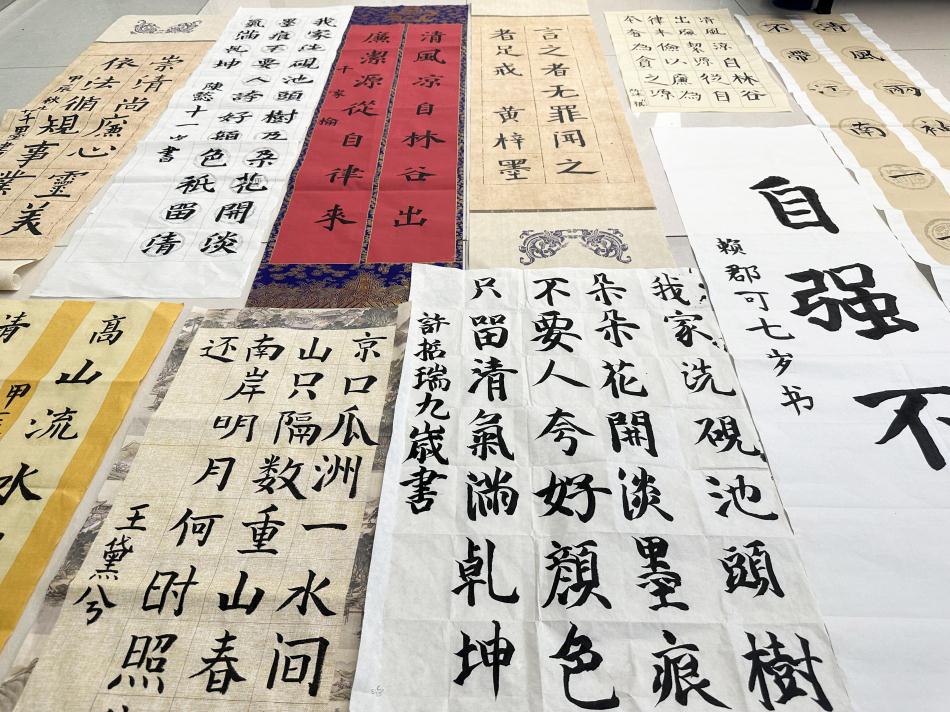 崇清尚廉心靈美
依法循規事業
甲辰秋千墨書
我家住硯池頭樹朵花開淡
墨痕不要人誇好顏色祇留清
氣滿乾坤
陳懿十一岁書
清風凉自林谷出
廉潔源從自律來
言之者无罪闻之
者足戒 黄梓墨
清風涼自林谷
出廉潔源從自
律儉以廉為
本奢為貪之源
清風兩袖
不帶江南一
自强不
赖郡可七岁书
高山流水
清
甲
京口瓜洲一水间
山只隔数重山春
南岸明月何时照
还
王黛兮
我家洗硯池頭樹
朵朵花開淡墨痕
不要人夸好顏色
只留清氣滿乹坤
許哲瑞九歲書